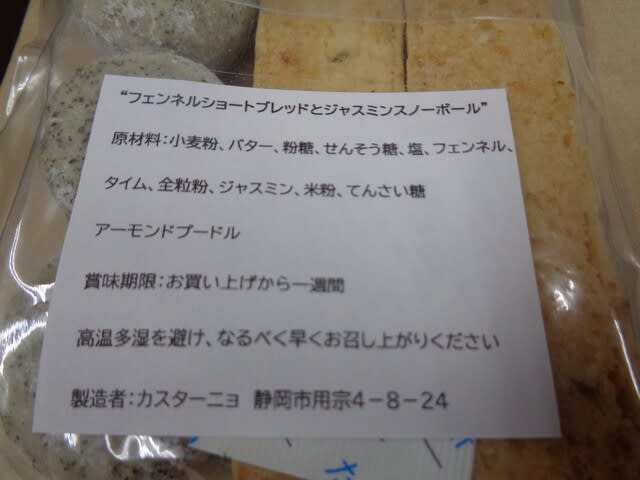 “フェンネルショートブレッドとジャスミンスノーボール”
原材料：小麦粉、バター、粉糖、せんそう糖、塩、フェンネル、
タイム、全粒粉、ジャスミン、米粉、てんさい糖
アーモンドプードル
賞味期限：お買い上げから一週間
高温多湿を避け、なるべく早くお召し上がりください
製造者：カスターニョ　静岡市用宗4－8－24